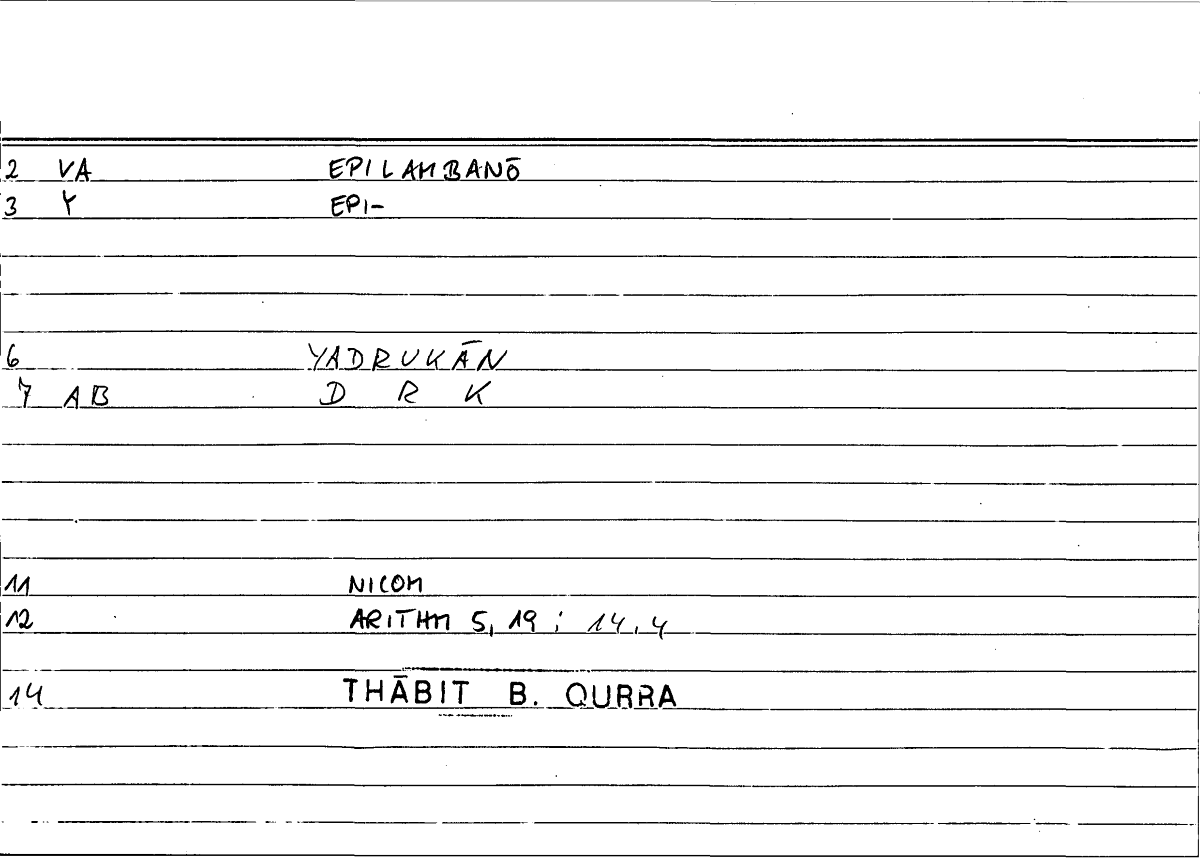 2 VA EPILAMBANŌ
3 Y EPI-
6 YADRUKĀN
7 AB D R K
11 NICOM
12 ARITHM 5, 19 ; 14,4
14 THĀBIT B. QURRA